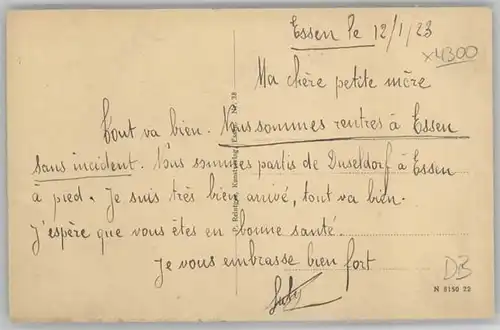 Essen le 12/1/23
x4300
Ma chère petite mère
Tout va bien. Nous sommes rentrés à Essen
sans incident. Nous sommes partis de Duseldorf à Essen
à pied. Je suis très bien arrivé, tout va bien.
J'espère que vous êtes en bonne santé.
Je vous embrasse bien fort
DB
N 8150 22
Kunstverlag, Essen. Nr. 38